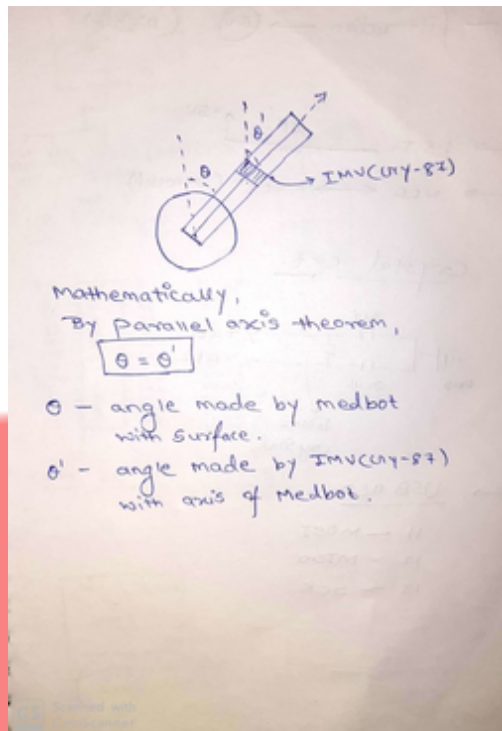 θ'
θ
IMU(GY-87)
Mathematically,
By parallel axis theorem,
θ = θ'
θ - angle made by medbot
with surface.
θ' - angle made by IMU(GY-87)
with axis of Medbot.
CS Scanned with
CamScanner